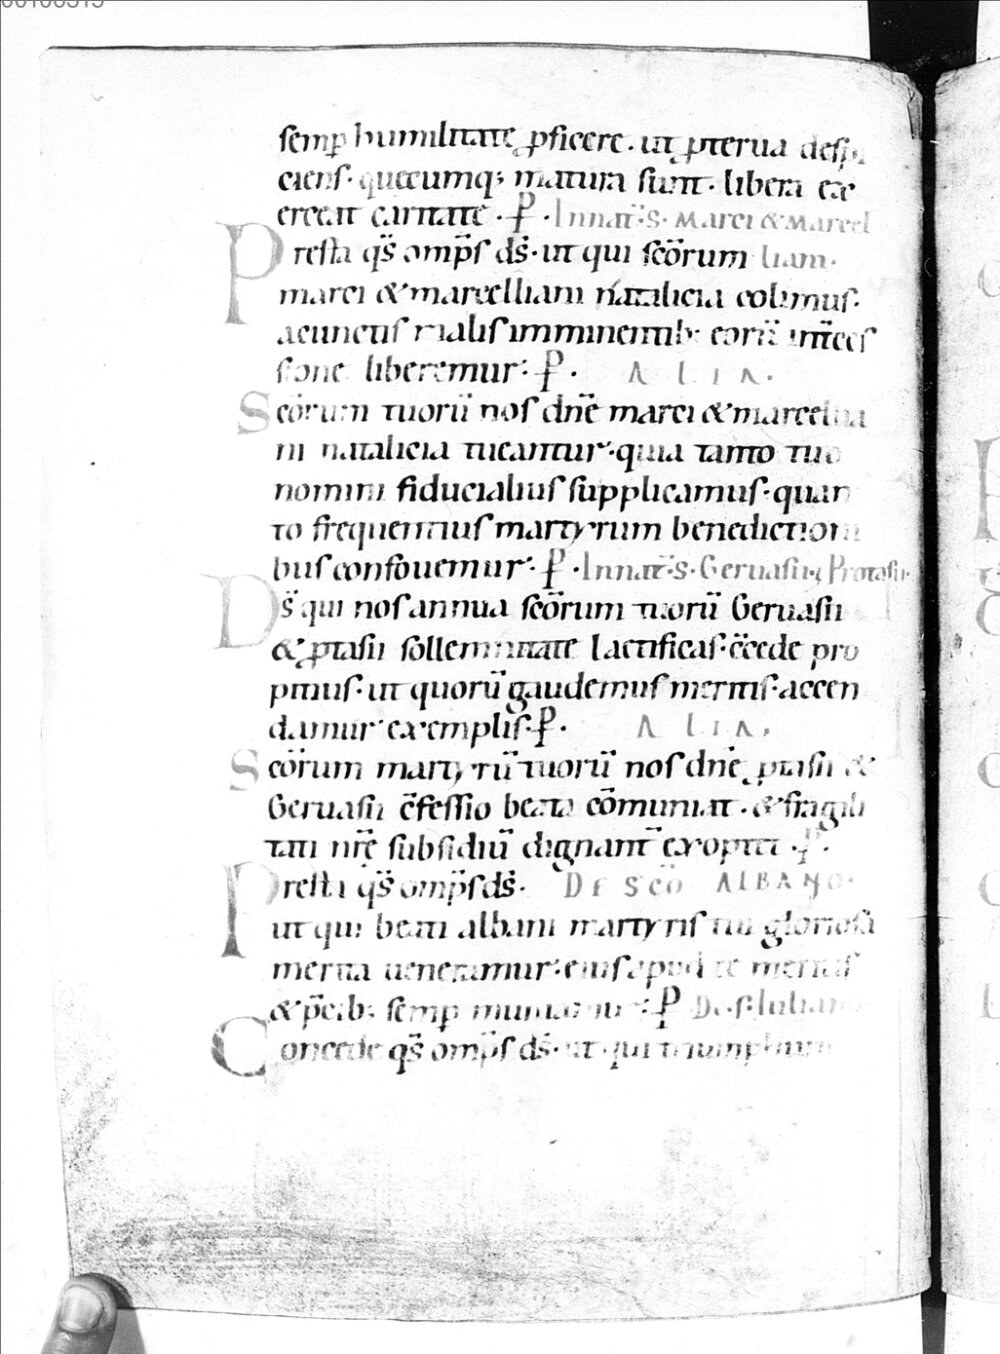 semp humilitate pficere. ut pterua despi
ciens. quecumq; matura sunt. libera ex
erceat caritate. P. In nat̄. S. Marci & Marcel
Presta qs̄ omp̄s ds̄. ut qui scōrum liani.
marci & marcelliani natalicia colimus.
a cunctis malis imminentib; eorū int̄ces
sione liberemur. P. ALIA.
Scōrum tuorū nos dnē marci & marcellia
ni natalicia tueantur. quia tanto tuo
nomini fiducialius supplicamus. quan
to frequentius martyrum benediction
bus confouemur. P. In nat̄. S. Geruasii & Protasii.
Ds̄ qui nos annua scōrum tuorū Geruasii
& ptasii sollemnitate laetificas. c̄cede pro
pitius. ut quorū gaudemus meritis. accen
damur exemplis. P. ALIA.
Scōrum martyrū tuorū nos dnē ptasii &
Geruasii c̄fessio beata cōmuniat. & fragili
tati nrē subsidiū dignant̄ exoptet. P.
Presta qs̄ omp̄s ds̄. DE SCŌ ALBANO.
ut qui beati albani martyris tui gloriosa
merita ueneramur. eius apud te meritis
& p̄cib; semp muniamur. P. De. S. Iuliano
Concede qs̄ omp̄s ds̄. ut qui triumphum